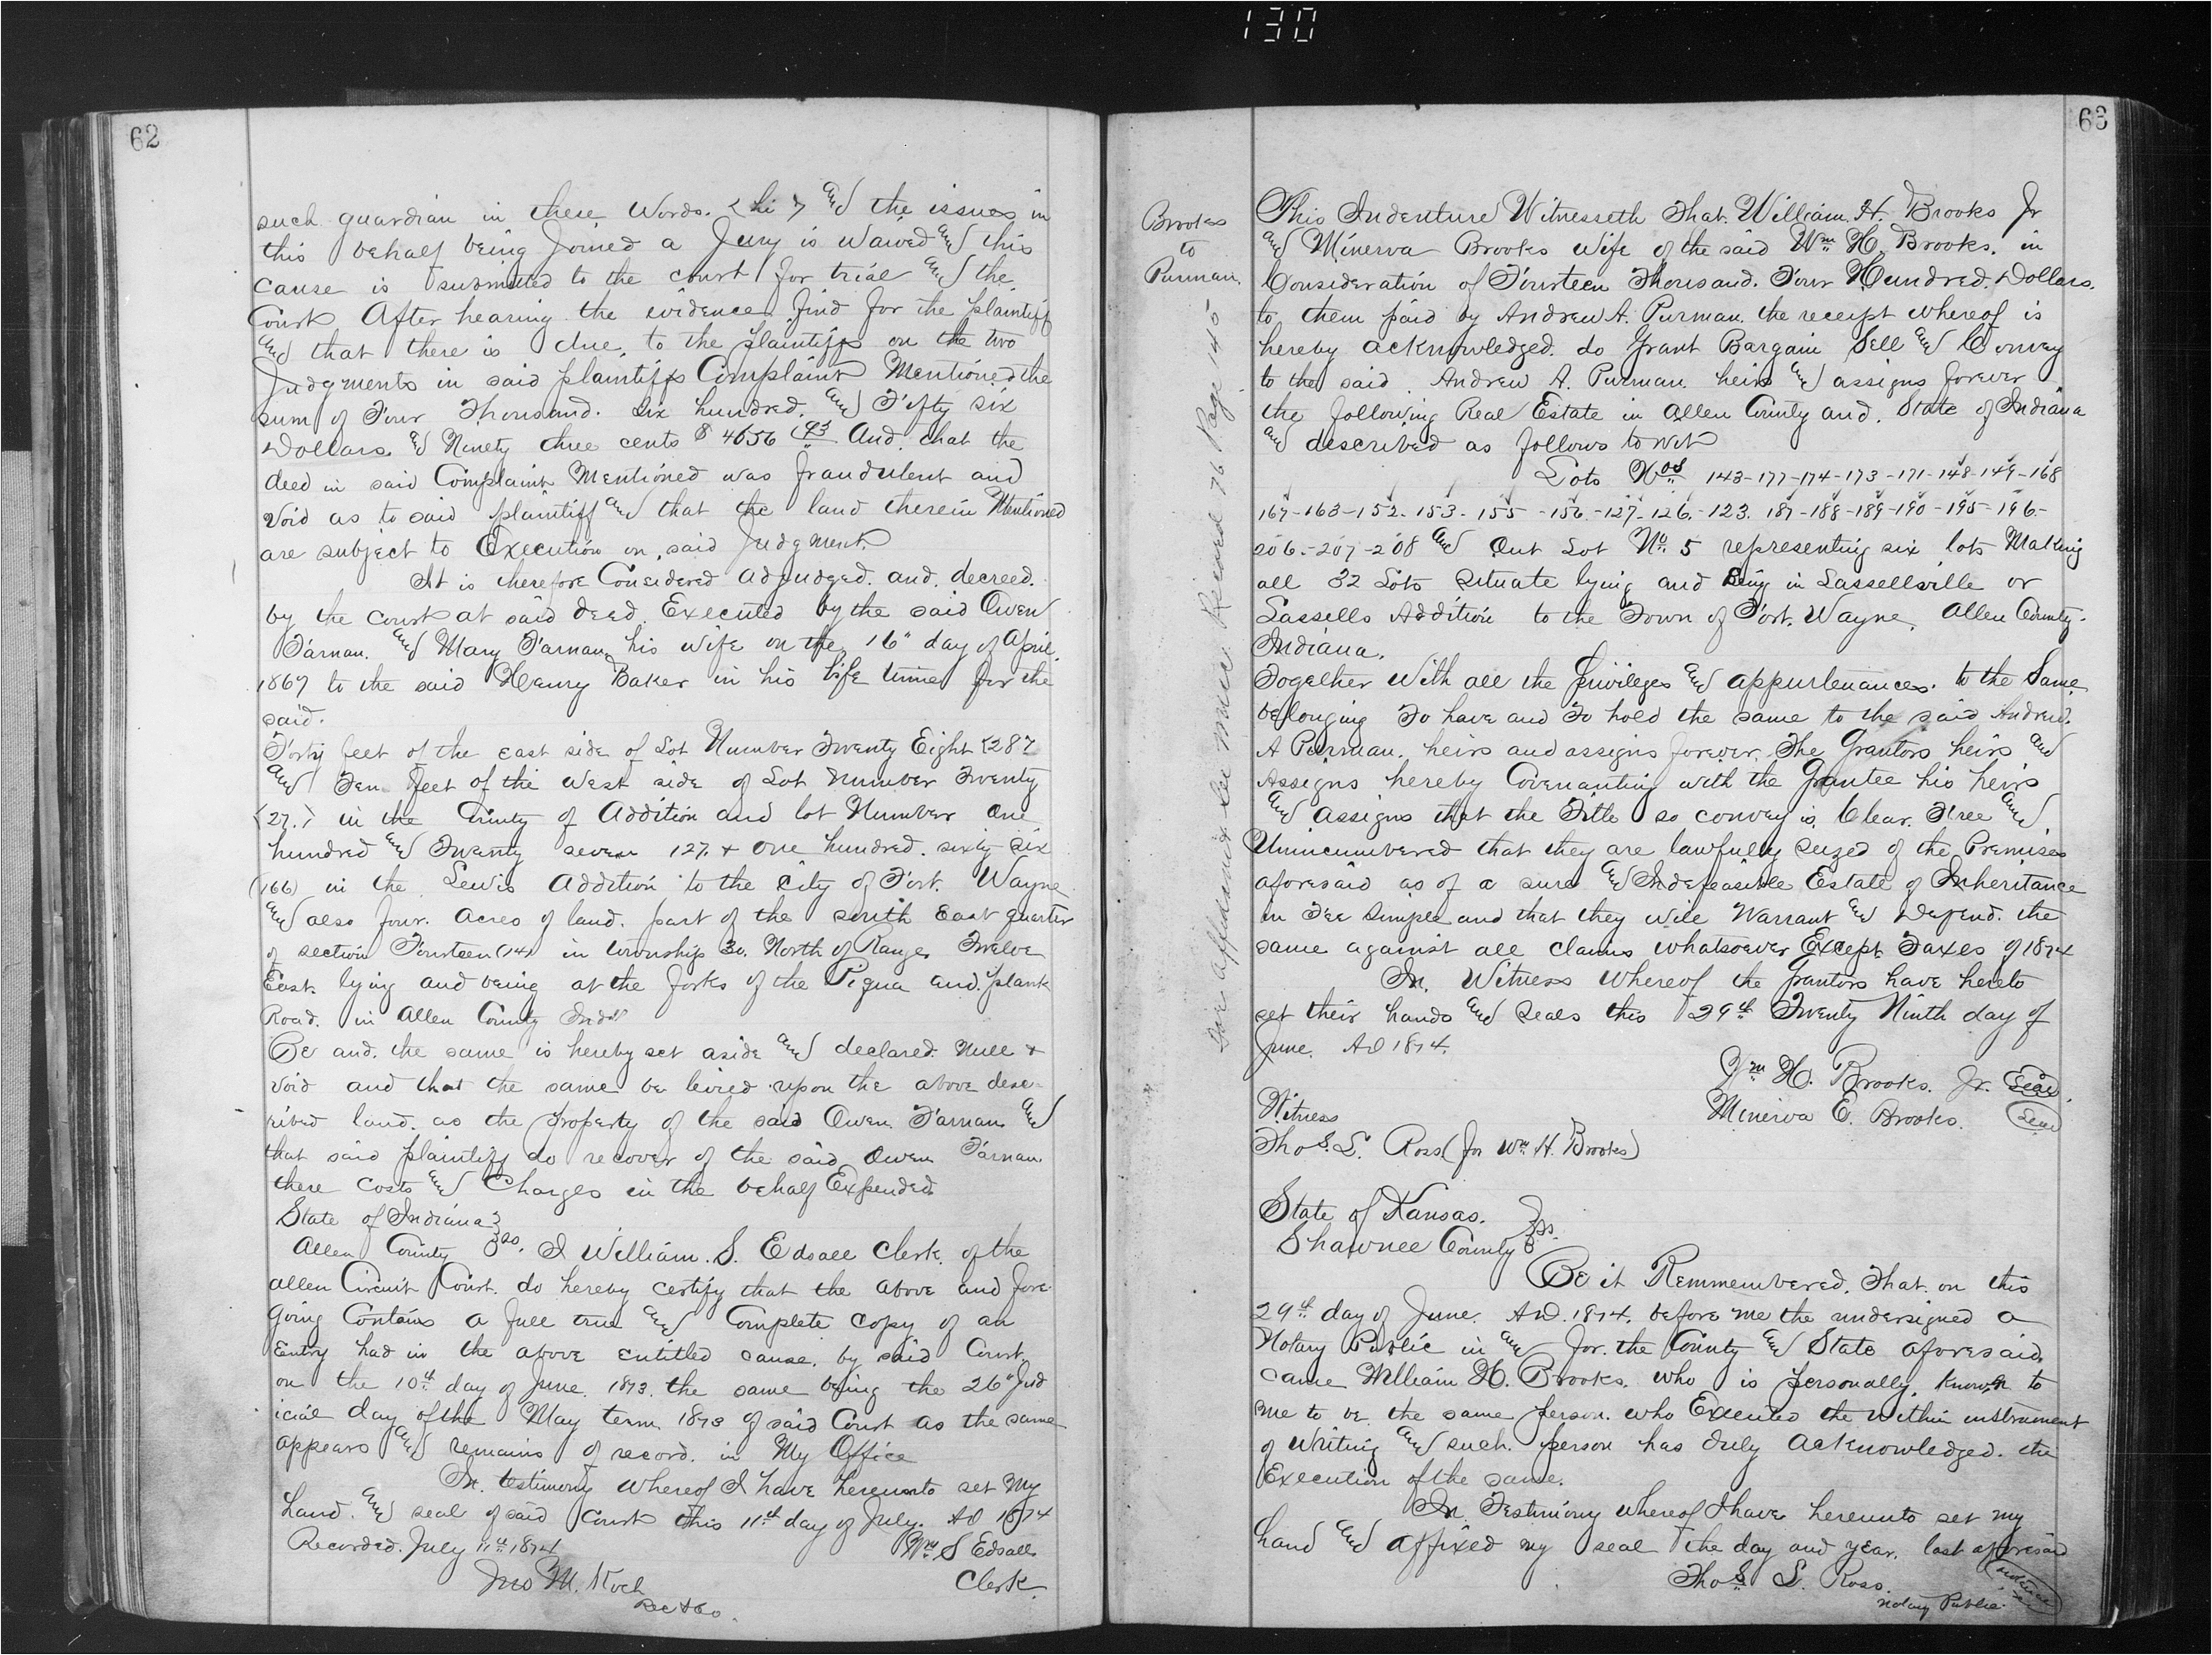 130
62
such guardian in these Words. (hi) and the issues in
this behalf being Joined a Jury is Waived and this
cause is submitted to the court for trial and the
Court After hearing the evidence find for the plaintiff
and that there is due, to the plaintiffs on the two
Judgments in said plaintiffs Complaint Mentioned the
sum of Four Thousand. Six hundred. and Fifty six
Dollars & Ninety three cents $ 4656 93 And that the
deed in said Complaint Mentioned was fraudulent and
Void as to said plaintiff and that the land therein Mentioned
are subject to Execution on said Judgment.
It is therefore Considered adjudged. and. decreed.
by the court at said deed Executed by the said Owen
Tarnan. and Mary Tarnan his wife on the 16" day of April.
1867 to the said Henry Baker in his life time for the
said.
Forty feet of the east side of Lot Number Twenty Eight (28)
and Ten feet of the West side of Lot number Twenty
(27.) in the Trinity of Addition and lot Number One
hundred and Twenty seven 127. + One hundred. sixty six
(166) in the Lewis Addition to the City of Fort. Wayne
and also four. Acres of land. part of the south East quarter
of section Fourteen (14) in township 30. North of Range Twelve
East. lying and being at the forks of the Piqua and. plank
Road. in Allen County Inda
Be and. the same is hereby set aside and declared. Null +
Void and that the same be levied upon the above desc-
ribed land. as the property of the said Owen Tarnan and
that said plaintiff do recover of the said Owen Tarnan
there costs and Charges in the behalf Expended.
State of Indiana }
Allen County } ss. I William. S. Edsall Clerk. of the
Allen Circuit Court. do hereby certify that the above and fore
going Contains a full true and Complete copy of an
Entry had in the above entitled cause. by said Court
on the 10th day of June. 1873. the same being the 26" Jud
icial day of the May term 1873 of said Court as the same
appears and remains of record. in My Office
In testimony whereof I have hereunto set My
hand. and seal of said Court this 11th day of July. AD 1874
Recorded. July 11th 1874
Wm S Edsall
Clerk
Jno M. Koch
Rec
63
Brooks
to
Purman.
This Indenture Witnesseth That. William. H. Brooks Jr
and Minerva Brooks Wife of the said Wm H. Brooks. in
Consideration of Fourteen Thousand. Four Hundred. Dollars.
to them paid by Andrew A. Purman. the receipt whereof is
hereby acknowledged. do Grant Bargain Sell and Convey
to the said Andrew A. Purman heirs and assigns forever
the following Real Estate in Allen County and. State of Indiana
and described as follows to wit
Lots Nos 143-177-174-173-171-148-149-168
167-163-152-153-155-156-127-126-123. 187-188-189-190-195-196-
206-207-208 and Out Lot No. 5 representing six lots Making
all 32 Lots Situate lying and Being in Lassellsville or
Lassells Addition to the Town of Fort. Wayne. Allen County.
Indiana.
Together With all the Privileges and appurtenances. to the Same
belonging To have and To hold the same to the said Andrew.
A Purman. heirs and assigns forever. The Grantors heirs and
Assigns hereby Covenanting with the Grantee his heirs
and assigns that the Title so convey is Clear. Free and
Unincumbered that they are lawfully Seized of the Premises
aforesaid as of a sure and Indefeasible Estate of Inheritance
in Fee Simple and that they will Warrant and Defend. the
same against all claims whatsoever Except Taxes of 1874
In. Witness Whereof the Grantors have hereto
set their hands and Seals this 29th Twenty Ninth day of
June. AD 1874.
Wm H. Brooks. Jr. Seal
Minerva E. Brooks. Seal
Witness
Thos. L. Ross (for Wm H. Brooks)
State of Kansas. }
Shawnee County } ss.
Be it Remmembered. That on this
29th day of June. AD. 1874. before me the undersigned a
Notary Public in and for. the County and State aforesaid
came William H. Brooks. who is personally. known to
me to be the same person. who Executed the Within instrument
of Writing and such. person has duly acknowledged. the
Execution of the same.
In Testimony whereof I have hereunto set my
hand and affixed my seal the day and year. last aforesaid
Thos L. Ross.
Notary Public.
For affidavit see Misc Record 76 Page 140